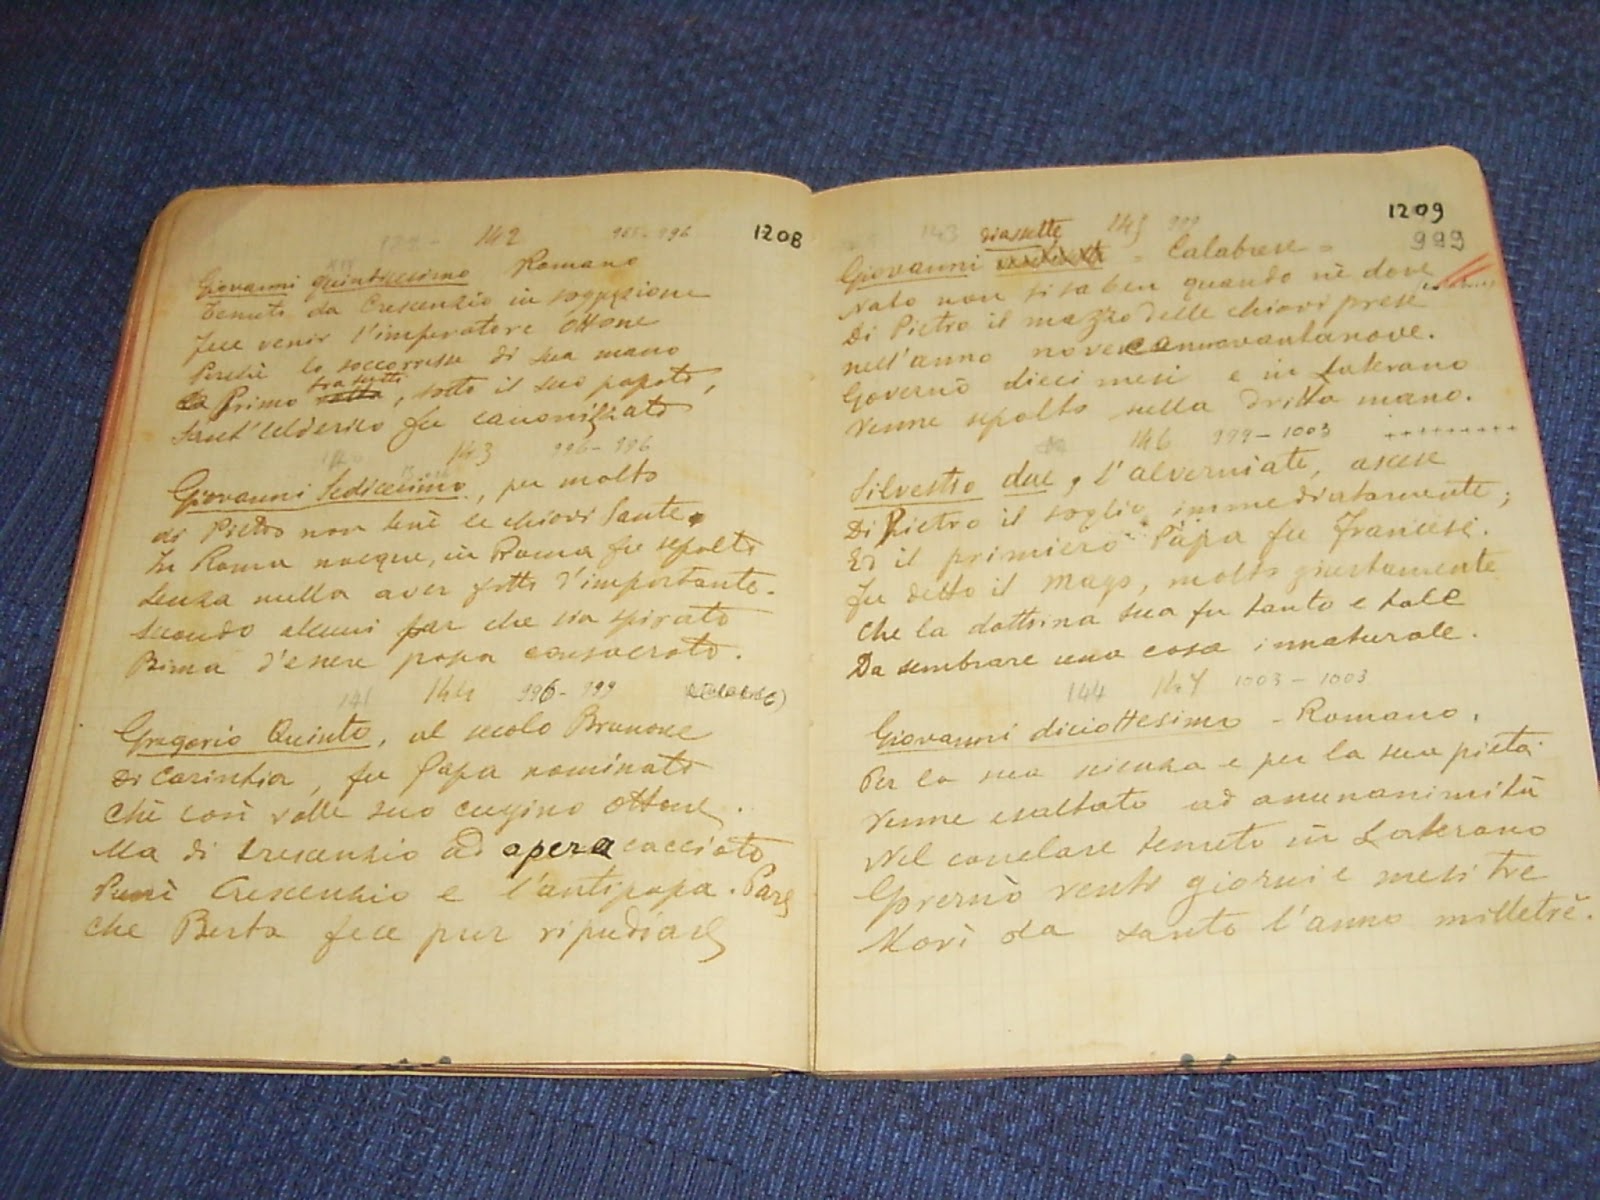 142 985-996 1208
Giovanni quindicesimo Romano
Tenuto da Crescenzio in soggezione
Fece venir l'imperatore Ottone
Perché lo soccorresse di sua mano
tra tutti
Primo, sotto il suo papato,
Sant'Uldarico fu canonizzato
143 996-996
Giovanni Sedicesimo, per molto
di Pietro non tenè le chiavi Sante.
In Roma nacque, in Roma fu sepolto
Senza nulla aver fatto d'importante.
Secondo alcuni par che sia spirato
Prima d'essere papa consacrato.
141 144 996-999
Gregorio Quinto, al secolo Brunone
Di Carinthia, fu Papa nominato
Chè così volle suo cugino Ottone.
Ma di Crescenzio ad opera cacciato
Punì Crescenzio e l'antipapa. Pare
che Berta fece pur ripudiare
143 145 999 1209
diassette 999
Giovanni - Calabrese -
Nato non si sa ben quando nè dove
Di Pietro il mazzo delle chiavi prese
nell'anno novecannovantanove.
Governò dieci mesi e in Laterano
Venne sepolto sulla dritta mano.
146 999-1003 +++++++++
Silvestro due, l'alverniate, ascese
Di Pietro il soglio immediatamente;
Ed il primiero Papa fu Francese.
Fu detto il Mago, molto giustamente
Che la dottrina sua fu tanto e tale
Da sembrare una cosa innaturale.
144 147 1003-1003
Giovanni diciottesimo - Romano,
Per la sua scienza e per la sua pietà
Venne esaltato ad anunanimità
Nel conclave tenuto in Laterano
Governò venti giorni e mesi tre
Morì da santo l'anno milletrè.